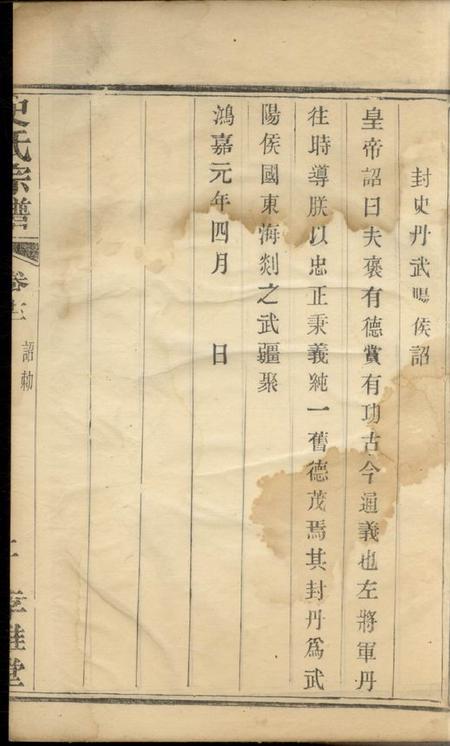 封史丹武陽侯詔
皇帝詔曰夫褒有德賞有功古今通義也左將軍丹
往時導朕以忠正秉義純一舊德茂焉其封丹爲武
陽侯國東海郯之武疆聚
鴻嘉元年四月　日
史氏宗譜
卷
詔勅
堂